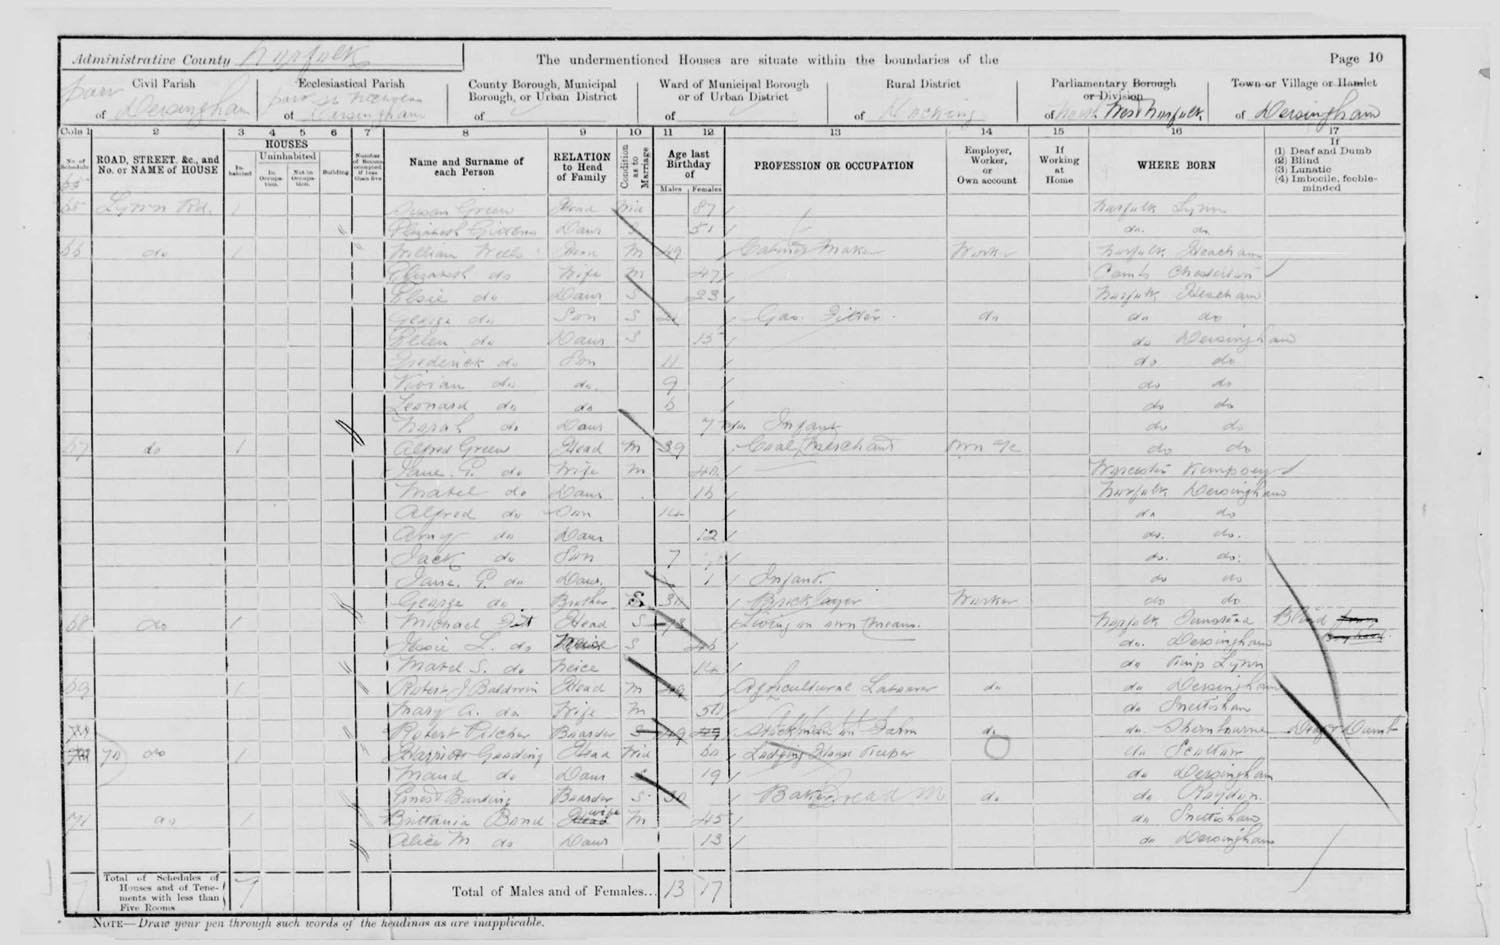 Administrative County Norfolk
The undermentioned Houses are situate within the boundaries of the
Page 10
Civil Parish
part of Dersingham
Ecclesiastical Parish
part of Dersingham
County Borough, Municipal Borough, or Urban District
of
Ward of Municipal Borough or of Urban District
of
Rural District
of Docking
Parliamentary Borough or Division
of North West Norfolk
Town or Village or Hamlet
of Dersingham
Cols 1 2 3 4 5 6 7 8 9 10 11 12 13 14 15 16 17
No. of Schedule
ROAD, STREET, &c., and No. or NAME of HOUSE
HOUSES
In-habited
Uninhabited
In Occupa-tion.
Not in Occupa-tion.
Building
Number of Rooms occupied if less than five
Name and Surname of each Person
RELATION to Head of Family
Condition as to Marriage
Age last Birthday of
Males Females
PROFESSION OR OCCUPATION
Employer, Worker, or Own account
If Working at Home
WHERE BORN
If
(1) Deaf and Dumb
(2) Blind
(3) Lunatic
(4) Imbecile, feeble-minded
65 Lynn Rd. 1 Susan Green Head Wid 87 Norfolk Lynn
Elizabeth Daur S 51 do. do
66 do 1 William Wells Head M 49 Cabinet Maker Worker Norfolk Heacham
Elizabeth do Wife M 47 Cambs Chesterton
Elsie do Daur S 23 Norfolk Heacham
George do Son S 21 Gas Fitter do do do
Ellen do Daur S 15 do Dersingham
Frederick do Son 11 do do
Vivian do do. 9 do do
Leonard do do 6 do do
Norah do Daur 7 mos Infant do do
67 do 1 Alfred Green Head M 39 Coal Merchant Own a/c do do
Jane P. do Wife M 40 Worcester Kempsey
Mabel do Daur 16 Norfolk Dersingham
Alfred do Son 14 do do
Amy do Daur 12 do. do.
Jack do Son 7 do. do.
Jane P. do Daur. 1 Infant do do
George do Brother S 30 Bricklayer Worker do do
68 do 1 Michael Head S 73 Living on own Means. Norfolk Blind
Jessie L. do Neice S 46 do. Dersingham
Mabel S. do Neice 14 do Kings Lynn
69 1 Robert J Baldwin Head M 49 Agricultural Labourer do do Dersingham
Mary A. do Wife M 50 do Snettisham
Robert Pilcher Boarder S 49 Stockman on Farm do do. Shernbourne Deaf Dumb
70 do 1 Harriet Gooding Head Wid 60 Lodging House Keeper do Sculton
Maud do Daur S 19 do Dersingham
Ernest Bunting Boarder S 30 Baker Bread M do do Roydon.
71 do 1 Brittania Bond Wife M 45 do Snettisham
Alice M do Daur 13 do Dersingham
7 Total of Schedules of Houses and of Tene-ments with less than Five Rooms 7
Total of Males and of Females... 13 17
NOTE—Draw your pen through such words of the headings as are inapplicable.